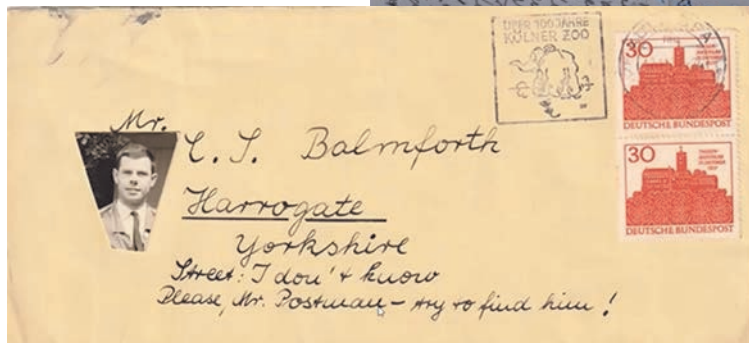 ÜBER 100 JAHRE
KÖLNER ZOO
30
DEUTSCHE BUNDESPOST
30
DEUTSCHE BUNDESPOST
Mr.
C. S. Balmforth
Harrogate
Yorkshire
Street: I don't know
Please, Mr. Postman – try to find him!